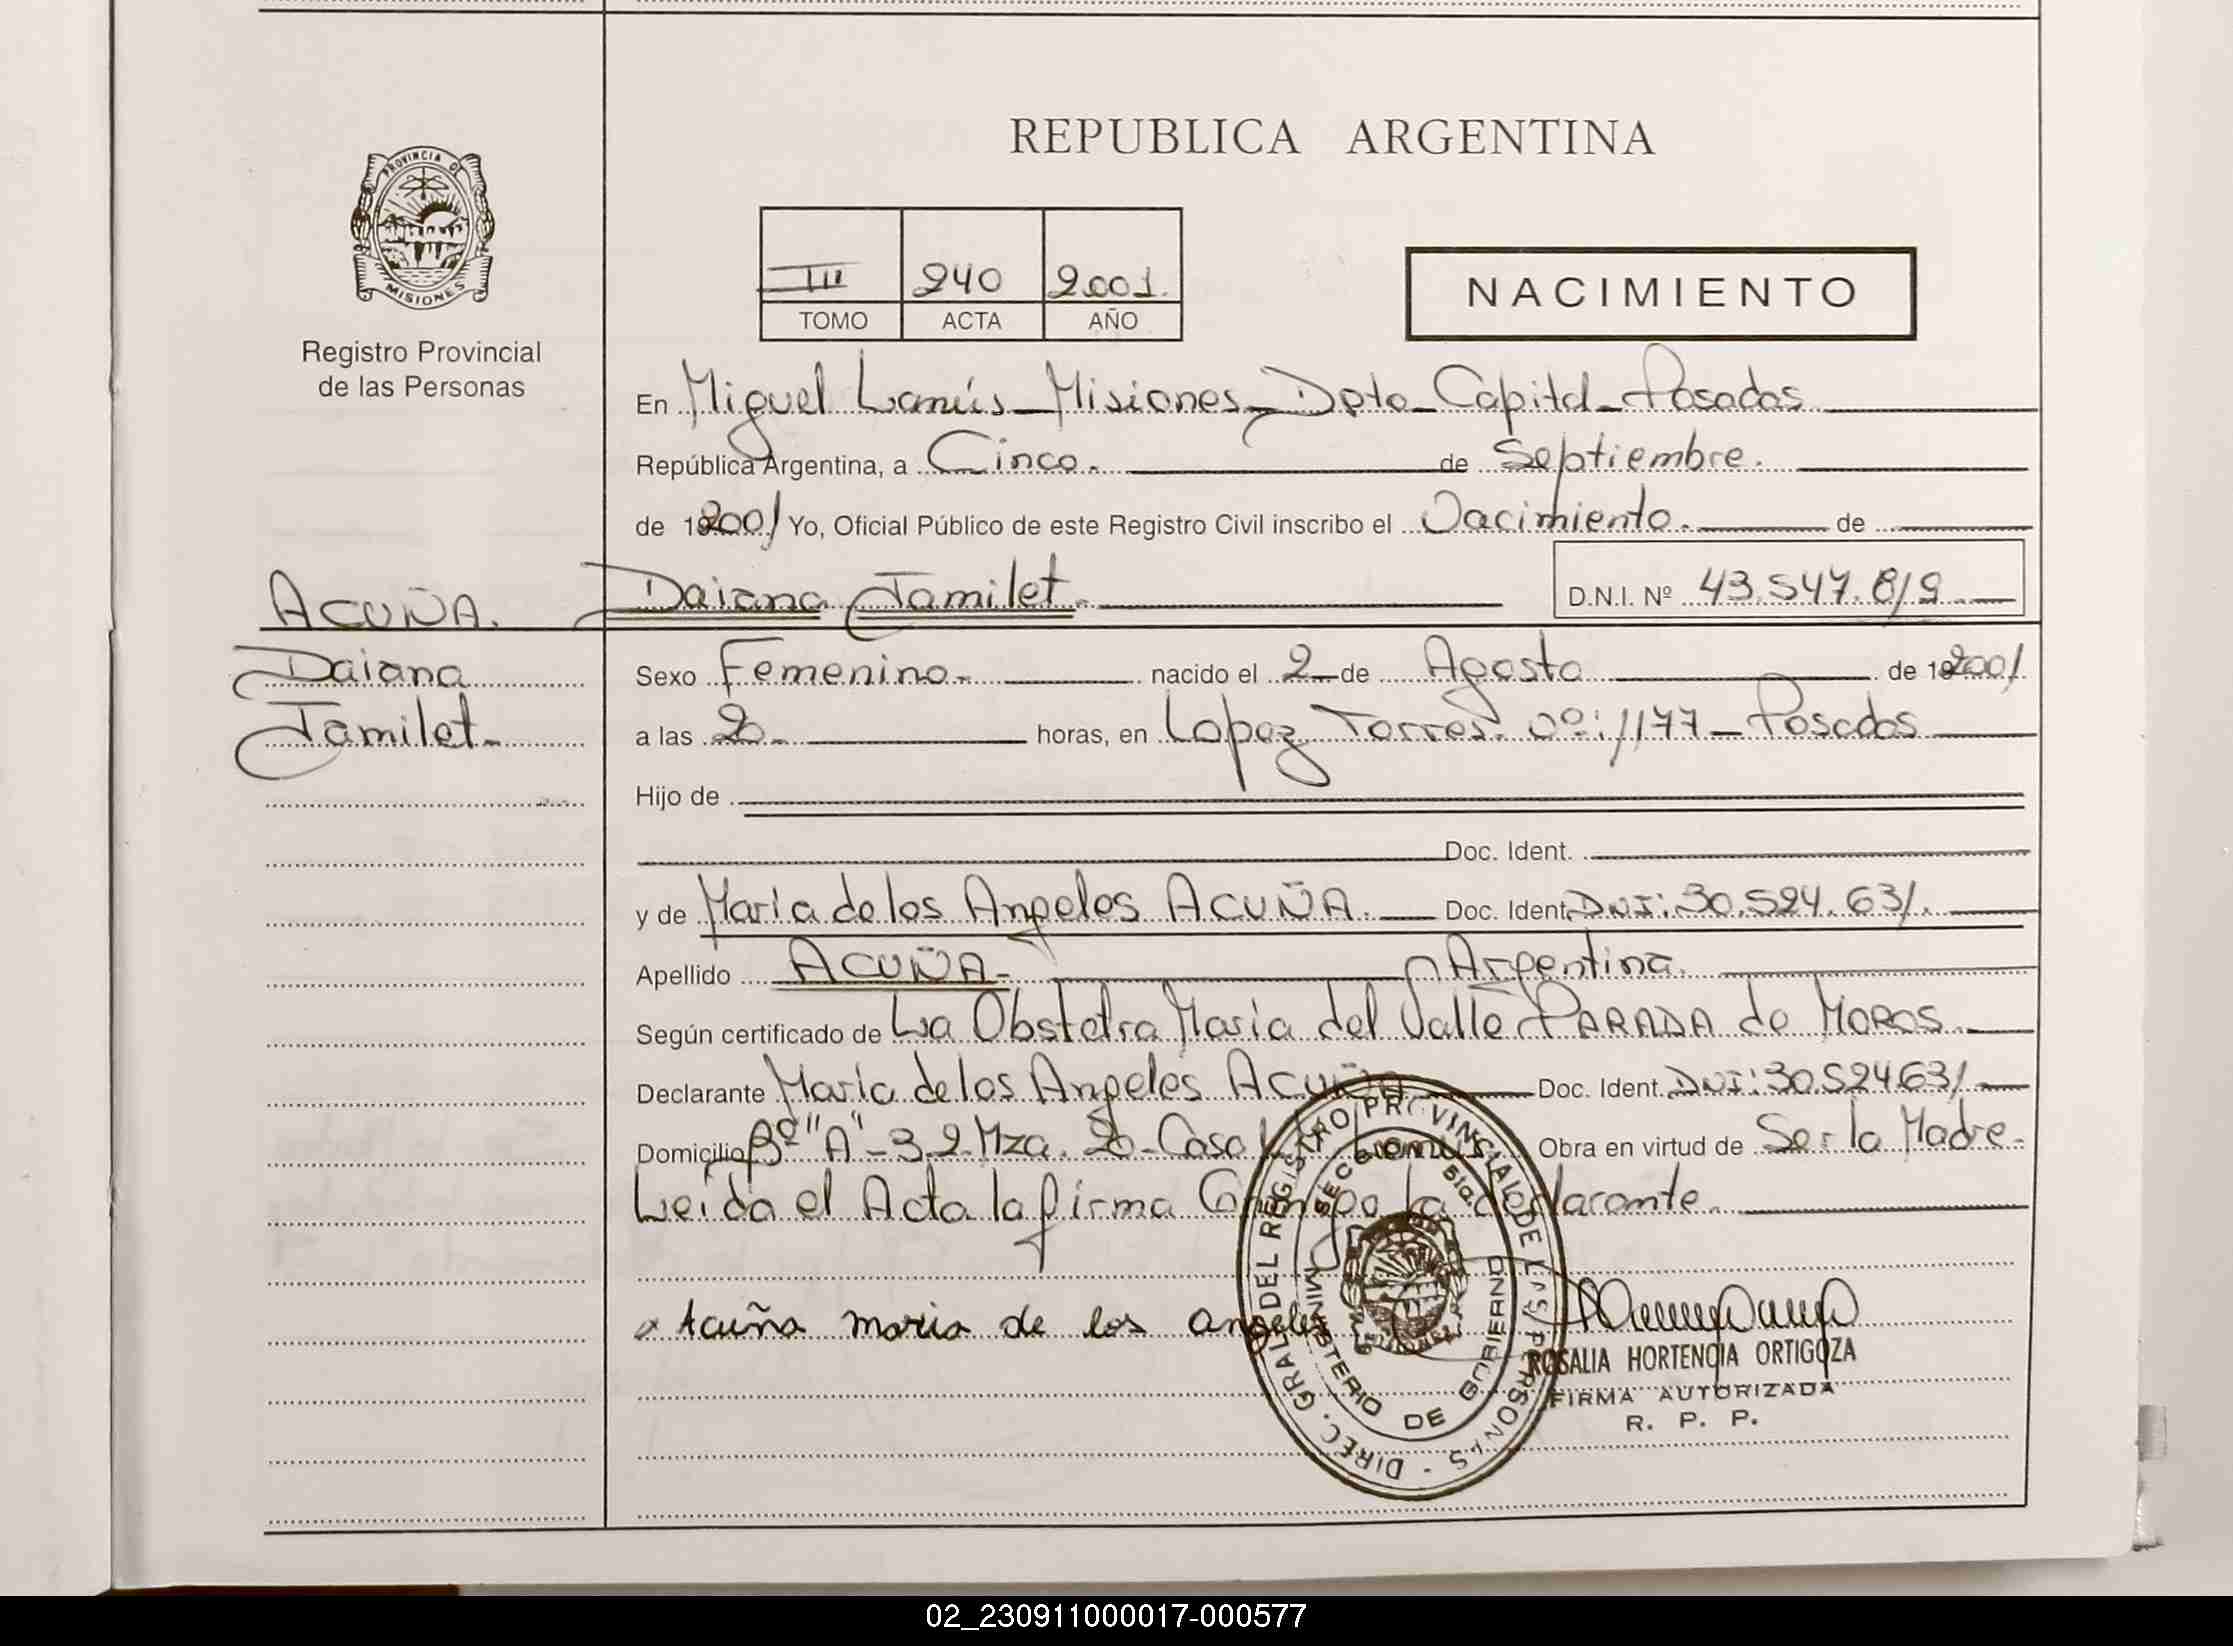 REPUBLICA ARGENTINA
PROVINCIA DE
MISIONES
Registro Provincial
de las Personas
III 240 2001.
TOMO ACTA AÑO
NACIMIENTO
En Miguel Lanús - Misiones - Dpto - Capital - Posadas
República Argentina, a Cinco. de Septiembre.
de 192001 Yo, Oficial Público de este Registro Civil inscribo el Nacimiento. de
ACUÑA. Daiana Jamilet. D.N.I. Nº 43.547.819
Daiana
Jamilet.
Sexo Femenino. nacido el 2 de Agosto de 192001
a las 20. horas, en Lopez Torres. Nº: 1177 - Posadas
Hijo de
Doc. Ident.
y de Maria de los Angeles ACUÑA. Doc. Ident. DNI: 30.524.631.
Apellido ACUÑA. Argentina.
Según certificado de La Obstetra Maria del Valle PARADA de MOROS.
Declarante María de los Angeles ACUÑA Doc. Ident. DNI: 30.524631
Domicilio Bº "A" - 32 Mza. 20 - Casa Lanus. Obra en virtud de Ser la Madre.
Leída el Acta la firma Conmigo la declarante.
x Acuña maria de los angeles
DIREC. GRAL. DEL REGISTRO PROVINCIAL DE LAS PERSONAS
SECCION 5ta.
MINISTERIO DE GOBIERNO
ROSALIA HORTENCIA ORTIGOZA
FIRMA AUTORIZADA
R. P. P.
02_230911000017-000577